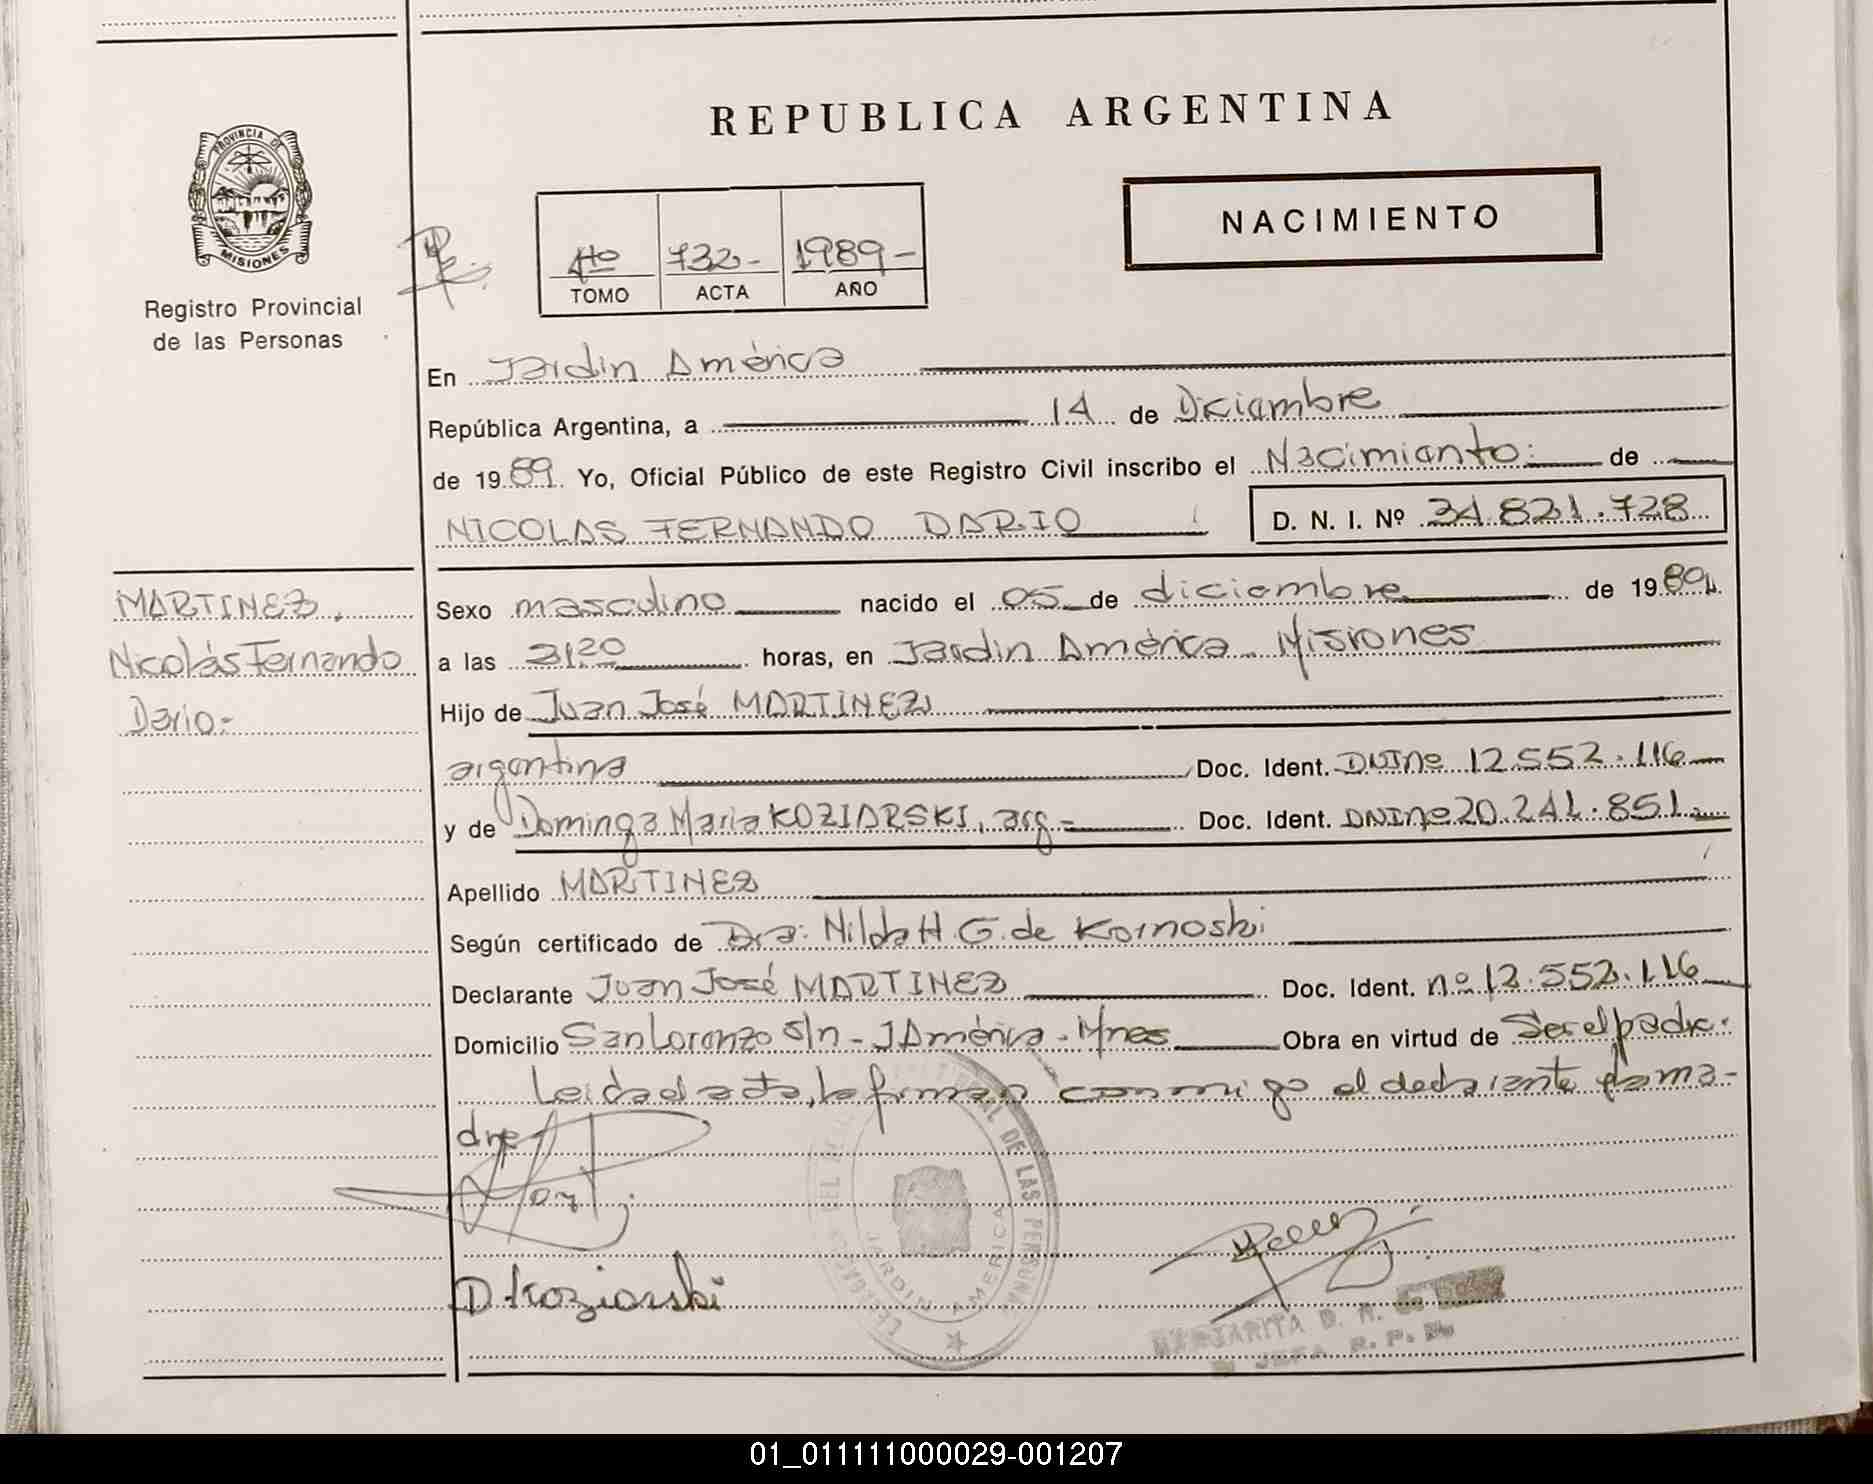 REPUBLICA ARGENTINA
PROVINCIA DE
MISIONES
Registro Provincial
de las Personas
NACIMIENTO
4to 732- 1989-
TOMO ACTA AÑO
En Jardin América
República Argentina, a 14 de Diciembre
de 1989. Yo, Oficial Público de este Registro Civil inscribo el Nacimiento: de
NICOLAS FERNANDO DARIO D. N. I. Nº 34.821.728
MARTINEZ,
Nicolás Fernando
Dario.-
Sexo masculino nacido el 05 de diciembre de 1989.
a las 21.20 horas, en Jardin América - Misiones
Hijo de Juan José MARTINEZ
argentina Doc. Ident. DNInº 12.552.116
y de Dominga Maria KOZIARSKI, arg.- Doc. Ident. DNInº 20.241.851.-
Apellido MARTINEZ
Según certificado de Dra: Nilda H. G. de Kornoski
Declarante Juan José MARTINEZ Doc. Ident. nº 12.552.116
Domicilio San Lorenzo s/n - J América - Mnes Obra en virtud de Ser el padre.
Leida el acta, la firman conmigo el declarante y la ma-
dre
D. Koziarski
DE LAS PERSONAS
JARDIN AMERICA
MARGARITA D. M.
JEFA R. P.
01_011111000029-001207